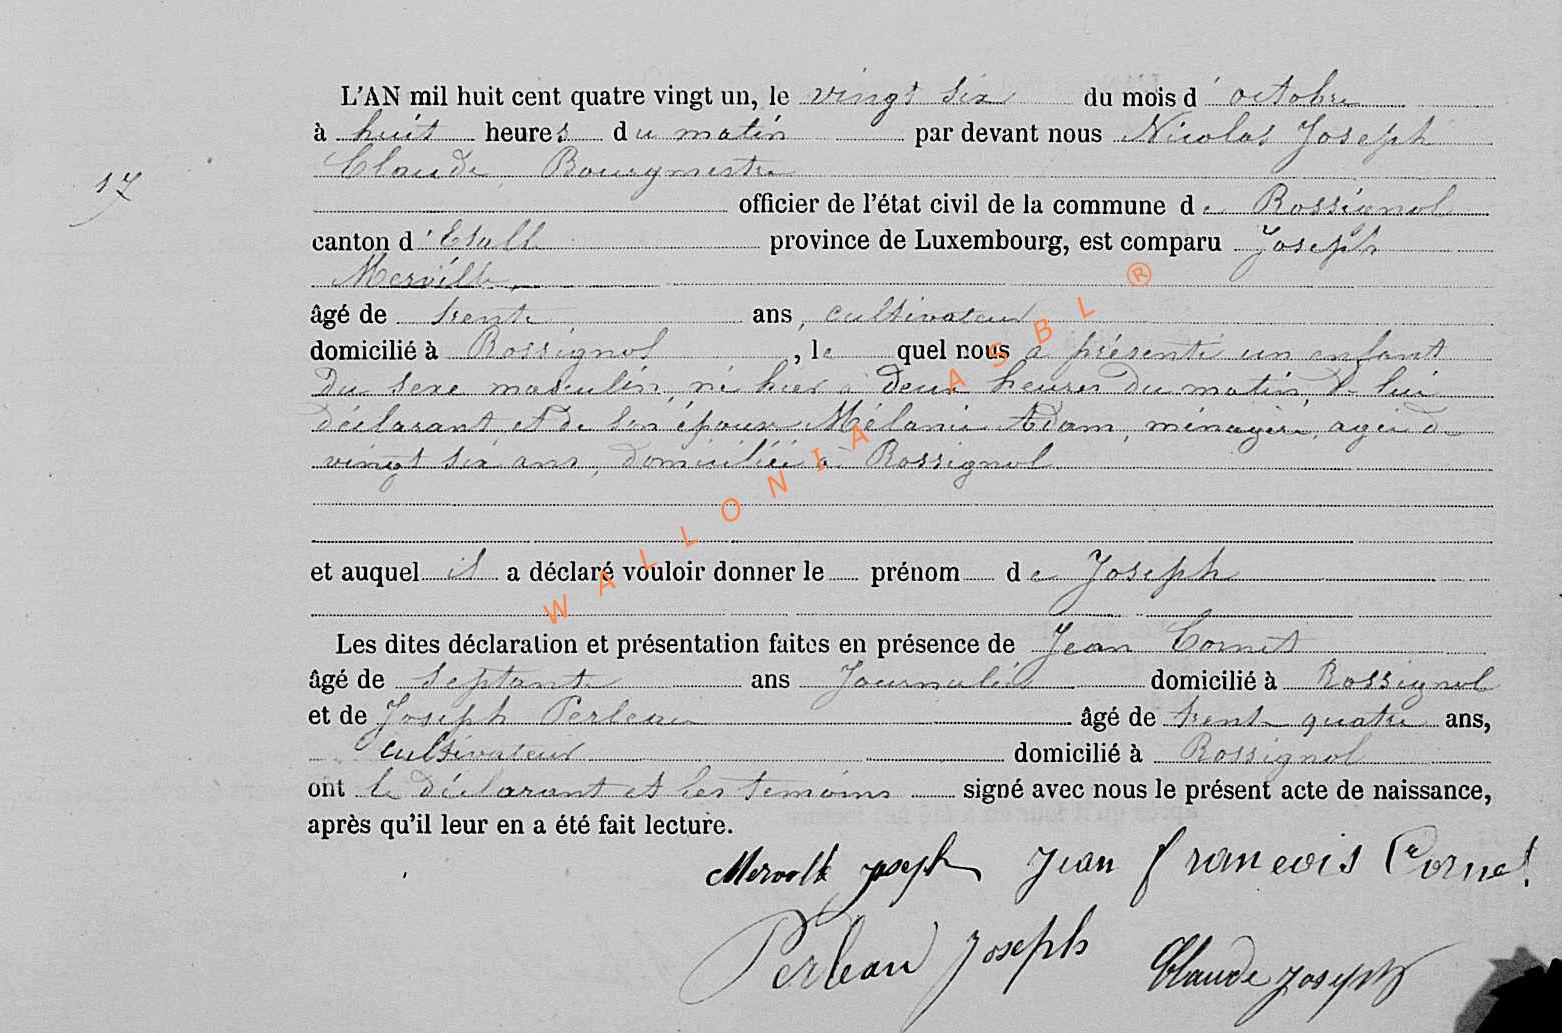 L'AN mil huit cent quatre vingt un, le vingt six du mois d' octobre
à huit heures du matin par devant nous Nicolas Joseph
17
Claude, Bourgmestre
officier de l'état civil de la commune de Rossignol
canton d' Etalle province de Luxembourg, est comparu Joseph
Merville,
âgé de trente ans, cultivateur
domicilié à Rossignol, le quel nous a présenté un enfant
du sexe masculin, né hier à deux heures du matin, de lui
déclarant et de son épouse Mélanie Adam, ménagère, agée de
vingt six ans, domiciliée à Rossignol
et auquel il a déclaré vouloir donner le prénom de Joseph
Les dites déclaration et présentation faites en présence de Jean Cornet
âgé de septante ans Journalier domicilié à Rossignol
et de Joseph Perleau âgé de trente quatre ans,
cultivateur domicilié à Rossignol
ont le déclarant et les temoins signé avec nous le présent acte de naissance,
après qu'il leur en a été fait lecture.
joseph Jean francois Cornet
Perleau Joseph Claude Joseph
WALLONIA ASBL ®